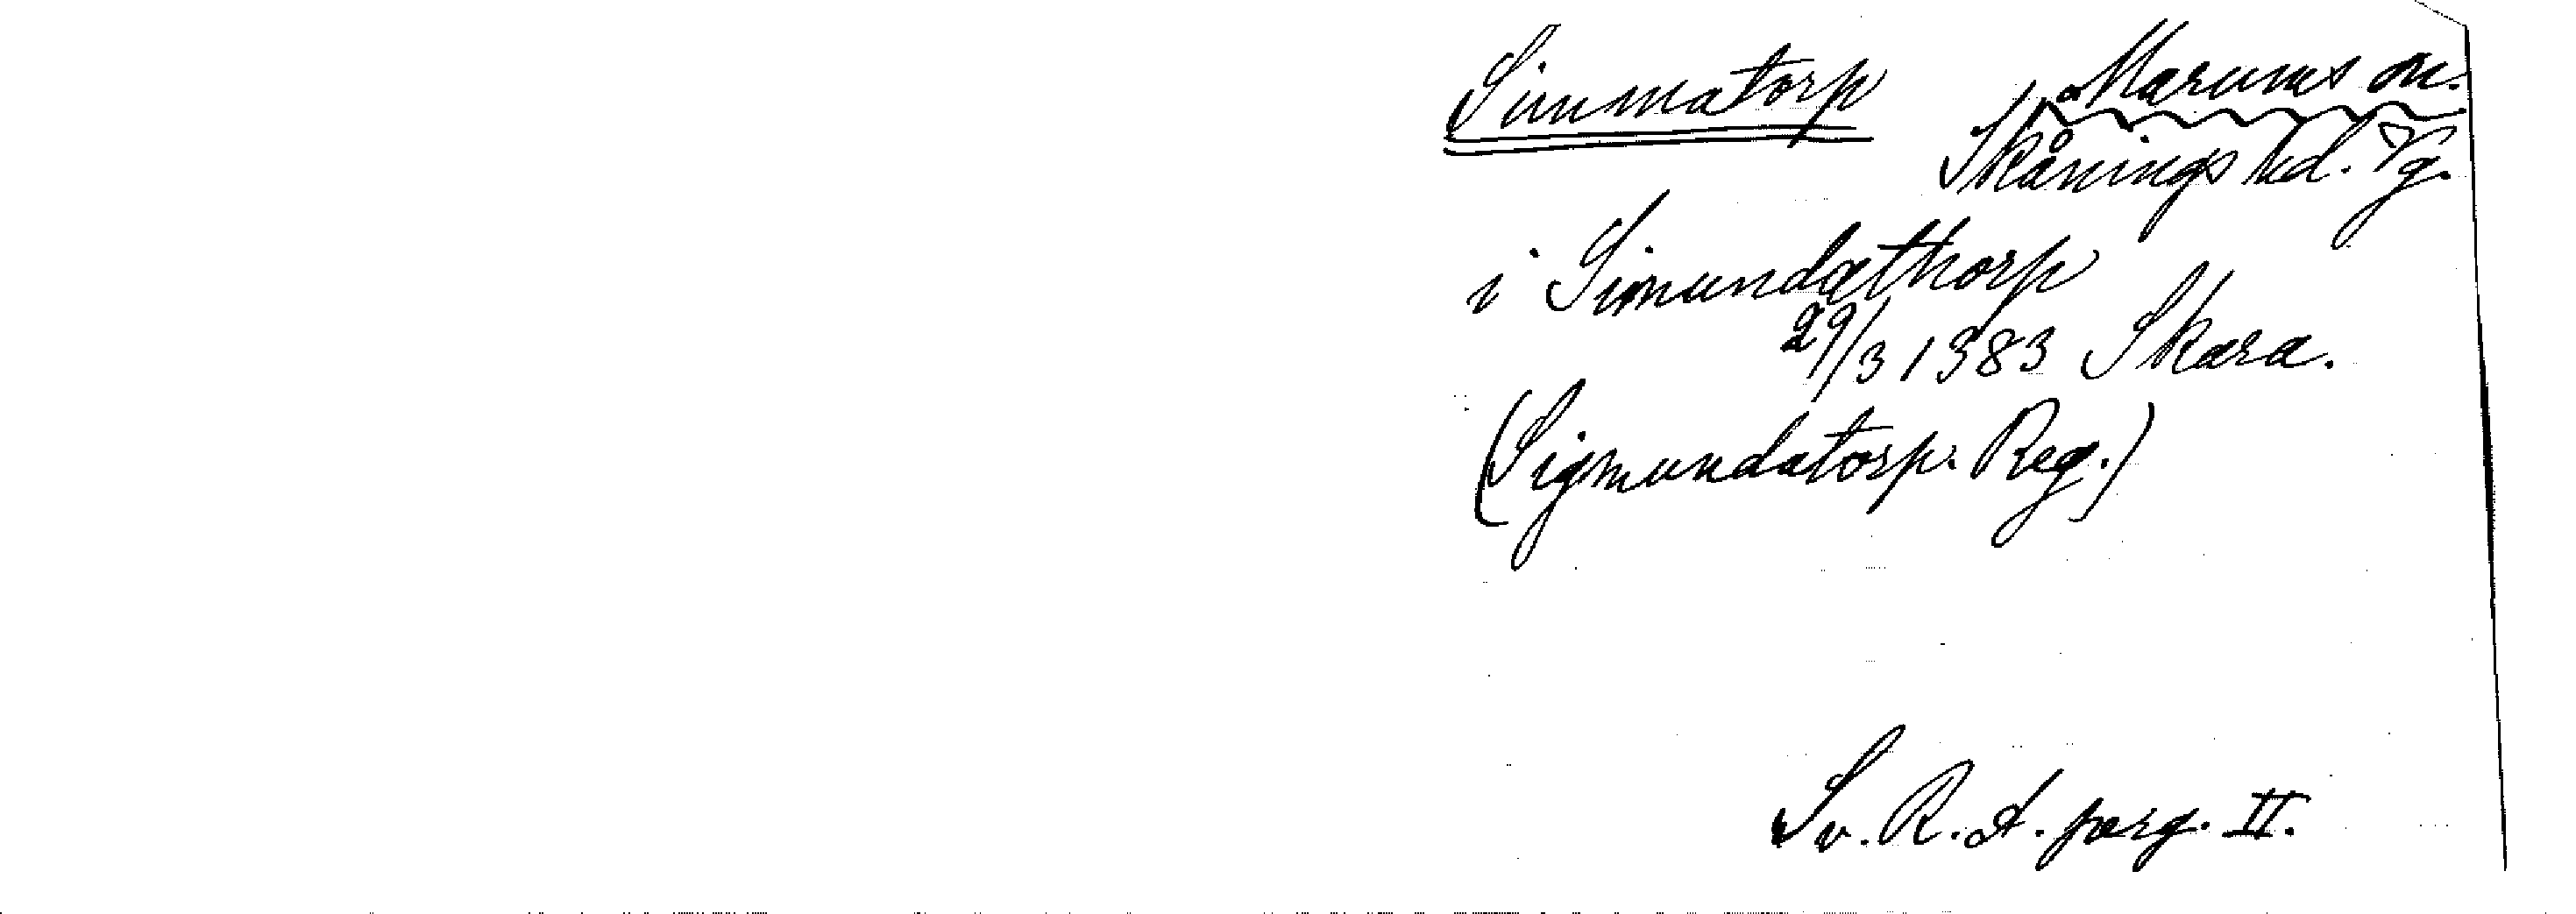 Simmatorp
Marums sn.
Skånings hd. Vg.
i Simundathorp
29/3 1383 Skara.
(Sigmundatorp. Reg.)
Sv. R. A. perg. II.